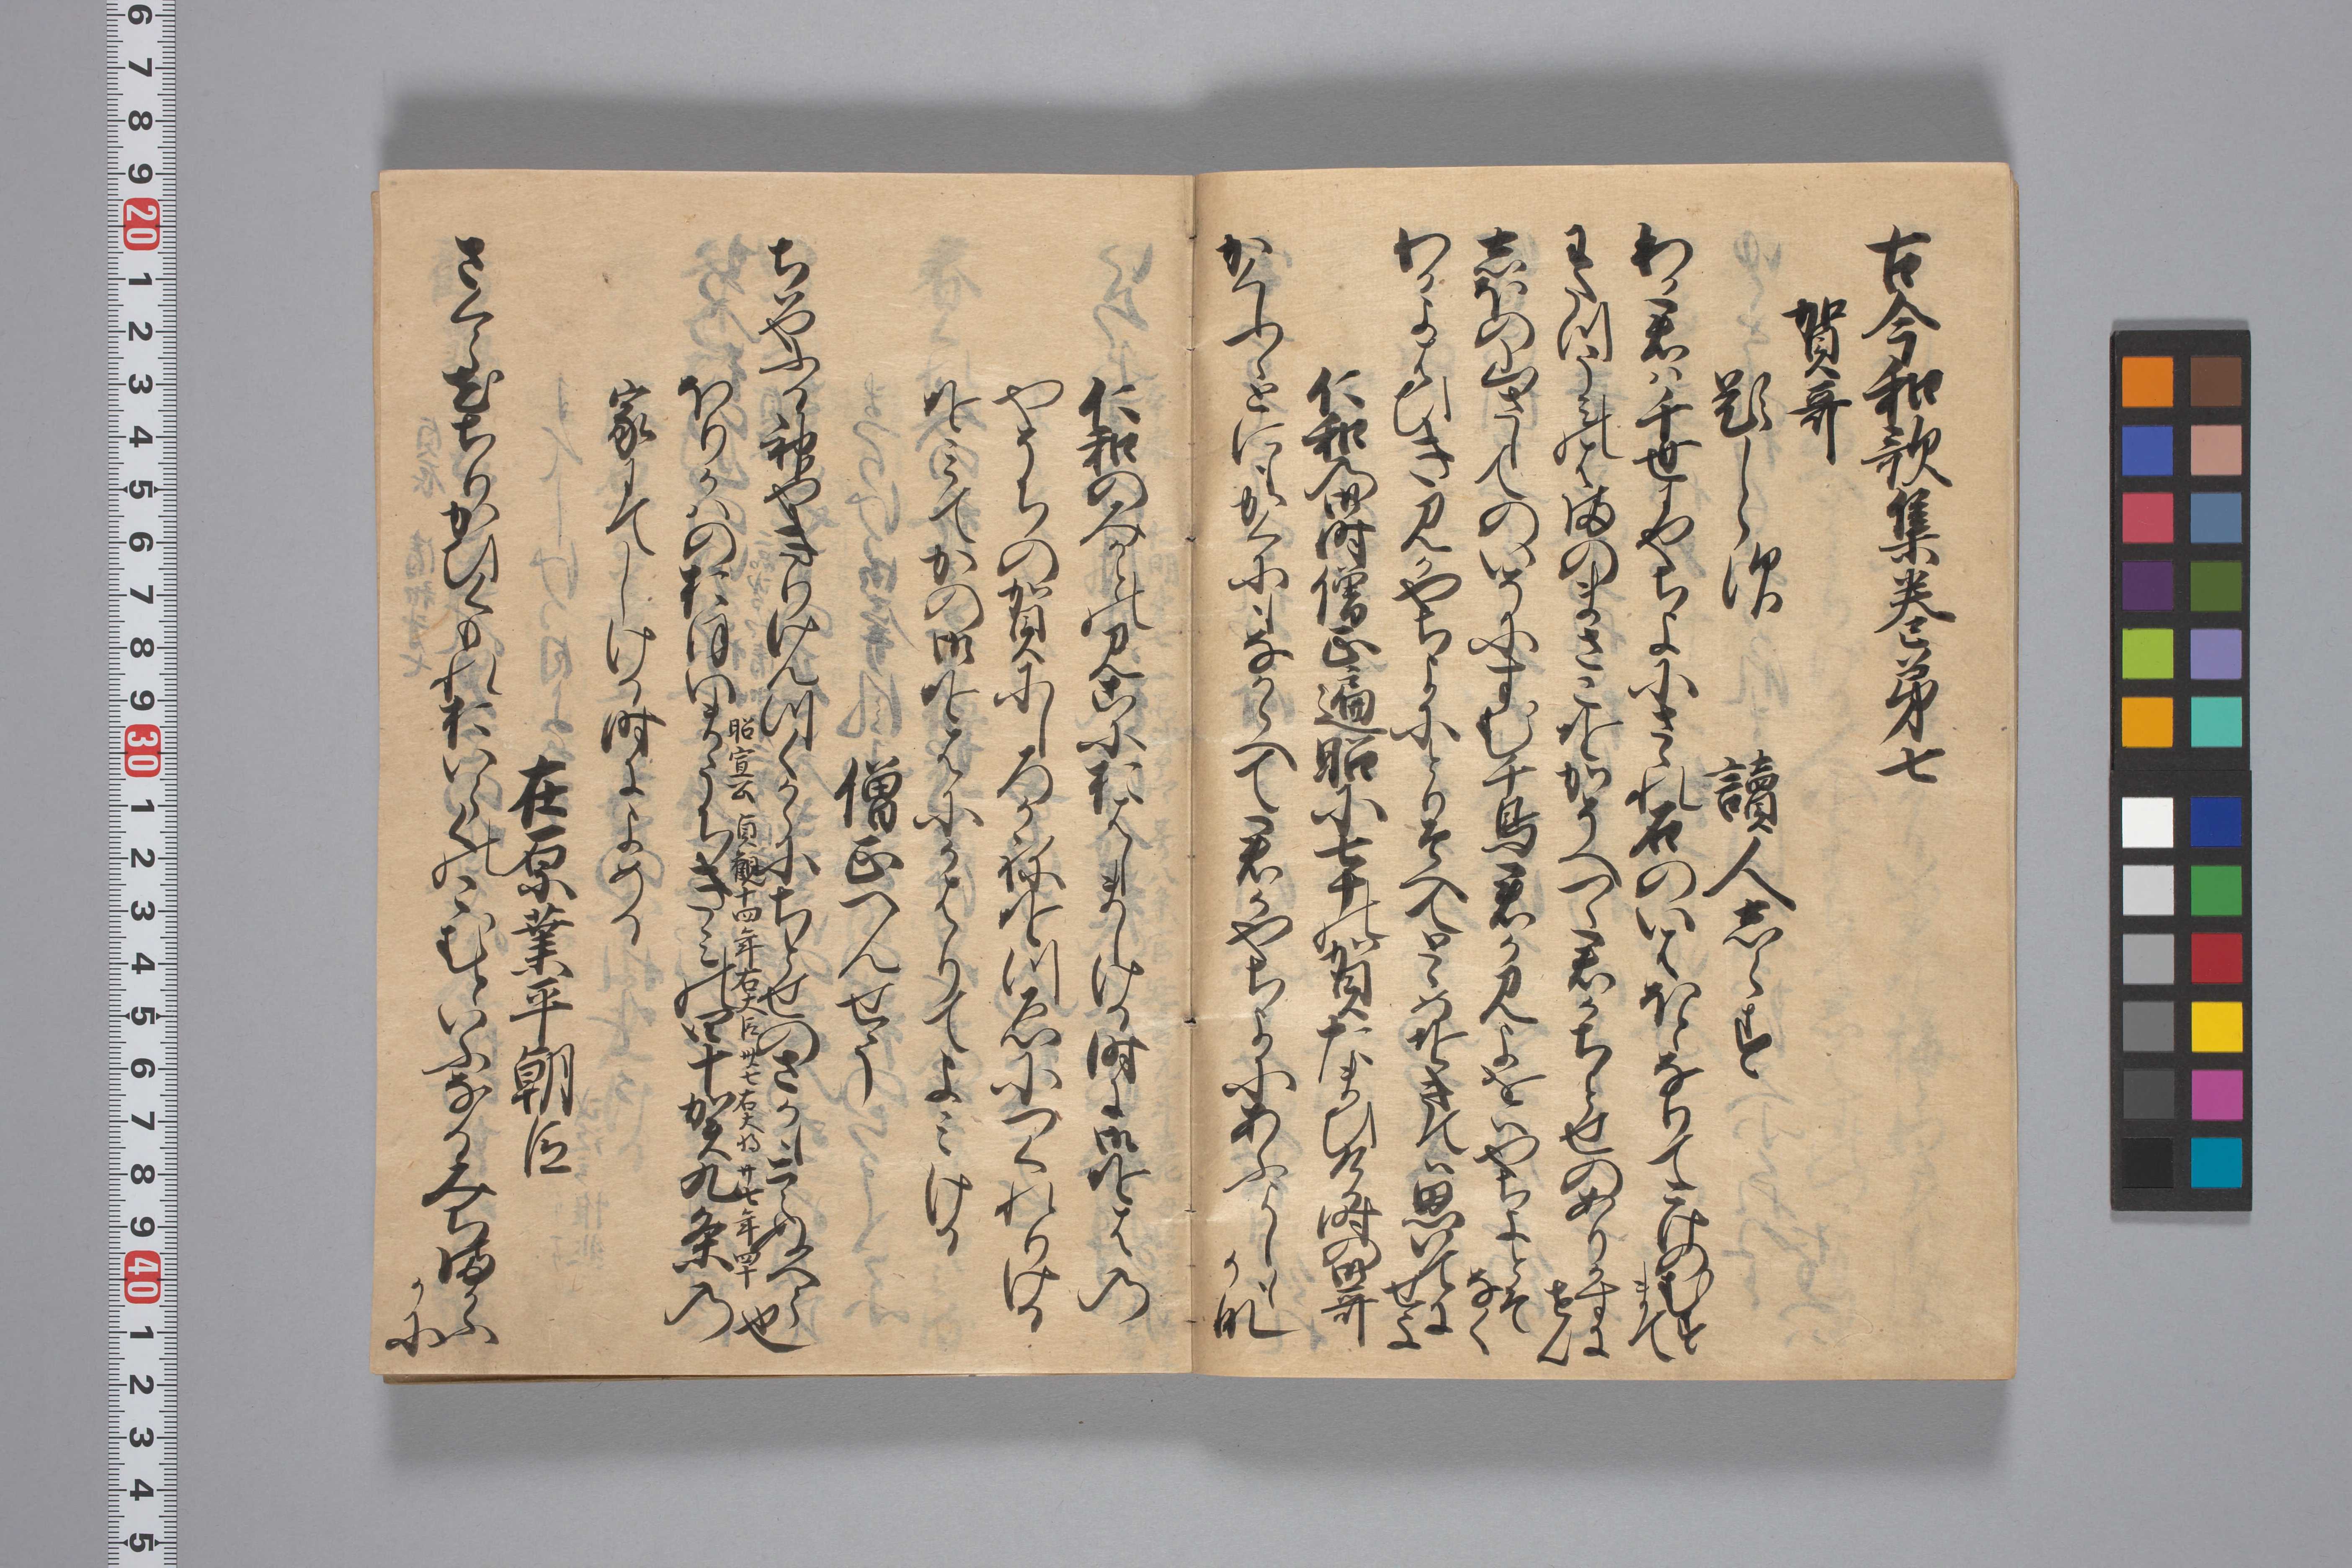 古今和歌集巻第七
賀哥
題しらす　讀人志らす
わか君は千世にやちよにさゝれ石のいはほとなりてこけのむすまて
わたつうみのはまのまさこをかそへつゝ君かちとせのありかすにせん
志ほの山さしてのいそにすむ千鳥君かみよをはやちよとそなく
わかよはひきみかやちよにとりそへてとゝめをきては思いてにせよ
仁和の御時僧正遍昭に七十の賀たまひける時の御哥
かくしつゝとにもかくにもなからへて君かやちよにあふよしもかな
仁和のみかとのみこにおはしましける時に御をはの
やそちの賀にしろかねをつゑにつくれりける
をみてかの御をはにかはりてよみける
僧正へんせう
ちはやふる神やきりけんつくからにちとせのさかもこえぬへら也
昭宣公 貞観十四年右大臣卅七右大将 廿七年四十
ほりかはのおほいまうちきみの四十賀九条の
家にてしける時によめる
在原業平朝臣
さくら花ちりかひくもれおいらくのこむといふなるみちまかふかに